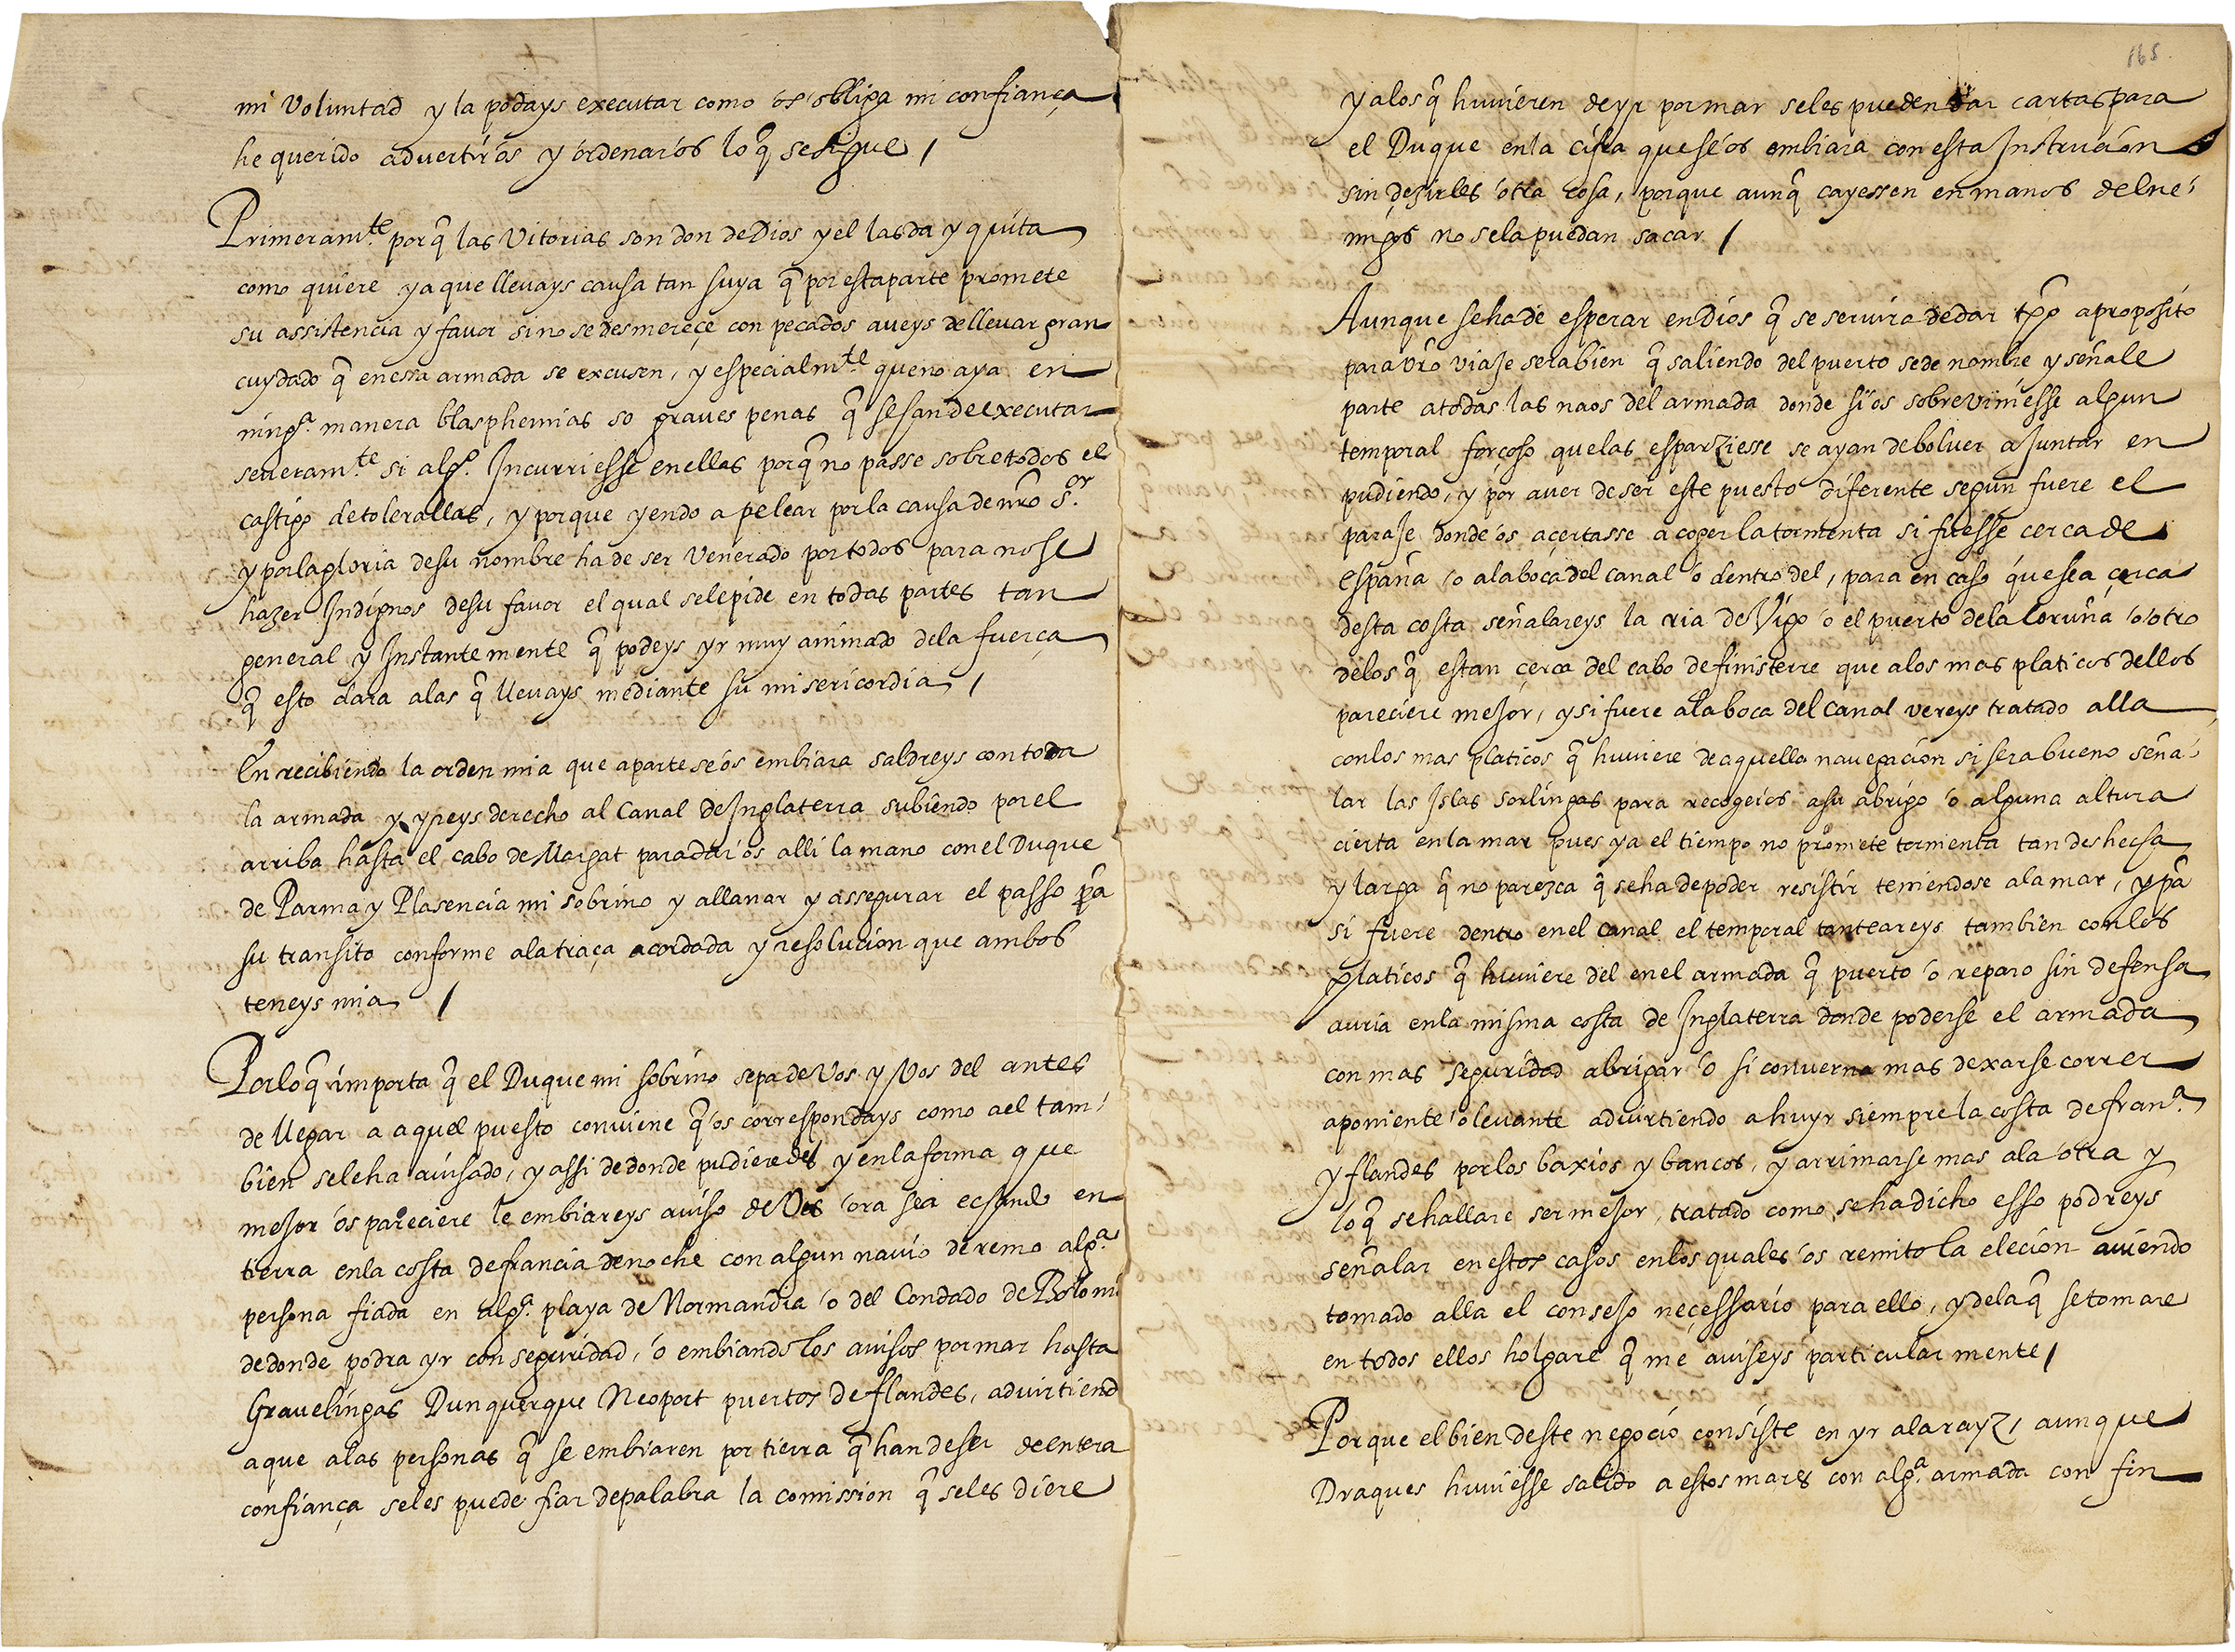 mi Voluntad y la podays executar como os obliga mi confiança
he querido advertiros y ordenaros lo q̃ se sigue /
Primeram.te porq̃ las Vitorias son don de Dios y el las da y quita
como quiere y a que llevays causa tan suya q̃ por esta parte promete
su assistencia y favor si no se desmereçe con pecados aveys de llevar gran
cuydado q̃ en essa armada se excusen, y especialm.te que no aya en
ning.a manera blasphemias so graves penas q̃ se han de executar
severam.te si alg.o Incurriesse en ellas porq̃ no passe sobre todos el
castigo de tolerallas, y porque yendo a pelear por la causa de nr̃o s.or
y por la gloria de su nombre ha de ser Venerado por todos para no se
hazer Indignos de su favor el qual se le pide en todas partes tan
general y Instantemente q̃ podeys yr muy animado de la fuerça
q̃ esto dara a las q̃ llevays mediante su misericordia /
En recibiendo la orden mia que aparte se os embiara saldreys con toda
la armada y yreys derecho al Canal de Inglaterra subiendo por el
arriba hasta el cabo de Margat para daros alli la mano con el Duque
de Parma y Plasencia mi sobrino y allanar y assegurar el passo p̃a
su transito conforme a la traça acordada y resolucion que ambos
teneys mia /
Por lo q̃ importa q̃ el Duque mi sobrino sepa de Vos y Vos del antes
de llegar a aquel puesto conviene q̃ os correspondays como a el tam-
bien se le ha avisado, y assi de donde pudieredes y en la forma que
mejor os pareciere le embiareys aviso de Vos ora sea echando en
tierra en la costa de francia de noche con algun navio de remo alg.a
persona fiada en alg.a playa de Normandia o del Condado de Boloni
de donde podra yr con seguridad, o embiando los avisos por mar hasta
Gravelingas Dunquerque Neoport puertos de flandes, advirtiend
a que a las personas q̃ se embiaren por tierra q̃ han de ser de entera
confiança se les puede fiar de palabra la comission q̃ se les diere
165.
y a los q̃ huvieren de yr por mar se les pueden dar cartas para
el Duque en la cifra que se os embiara con esta Instrucion
sin dezirles otra cosa, porque aunq̃ cayessen en manos de ene-
migos no se la puedan sacar /
Aunque se ha de esperar en Dios q̃ se servira de dar tp̃o a proposito
para vr̃o viaje sera bien q̃ saliendo del puerto se de nombre y señale
parte a todas las naos del armada donde si os sobreviniesse algun
temporal forçoso que las esparziesse se ayan de bolver a Juntar en
pudiendo, y por aver de ser este puesto diferente segun fuere el
paraje donde os açertasse a coger la tormenta si fuesse cerca de
españa o a la boca del canal o dentro del, para en caso que sea cerca
desta costa señalareys la ria de Vigo o el puerto de la Coruña o otro
de los q̃ estan çerca del cabo de finisterre que a los mas platicos dellos
pareciere mejor, y si fuere a la boca del canal vereys tratado alla
con los mas platicos q̃ huviere de aquella navegacion si sera bueno seña-
lar las Islas Sorlingas para recogeros a su abrigo o alguna altura
cierta en la mar pues ya el tiempo no promete tormenta tan deshecha
y larga q̃ no parezca q̃ se ha de poder resistir teniendose a la mar, y p̃a
si fuere dentro en el canal el temporal tanteareys tambien con los
platicos q̃ huviere del en el armada q̃ puerto o reparo sin defensa
auria en la misma costa de Inglaterra donde poderse el armada
con mas seguridad abrigar o si converna mas dexarse correr
a poniente o levante advirtiendo a huyr siempre la costa de fran.a
y flandes por los baxios y bancos, y arrimarse mas a la otra y
lo q̃ se hallare ser mejor, tratado como se ha dicho esso podreys
señalar en estos casos en los quales os remito la elecion aviendo
tomado alla el consejo neçessario para ello, y de la q̃ se tomare
en todos ellos holgare q̃ me aviseys particularmente /
Porque el bien deste negocio consiste en yr a la rayz, aunque
Draques huviesse salido a estos mares con alg.a armada con fin